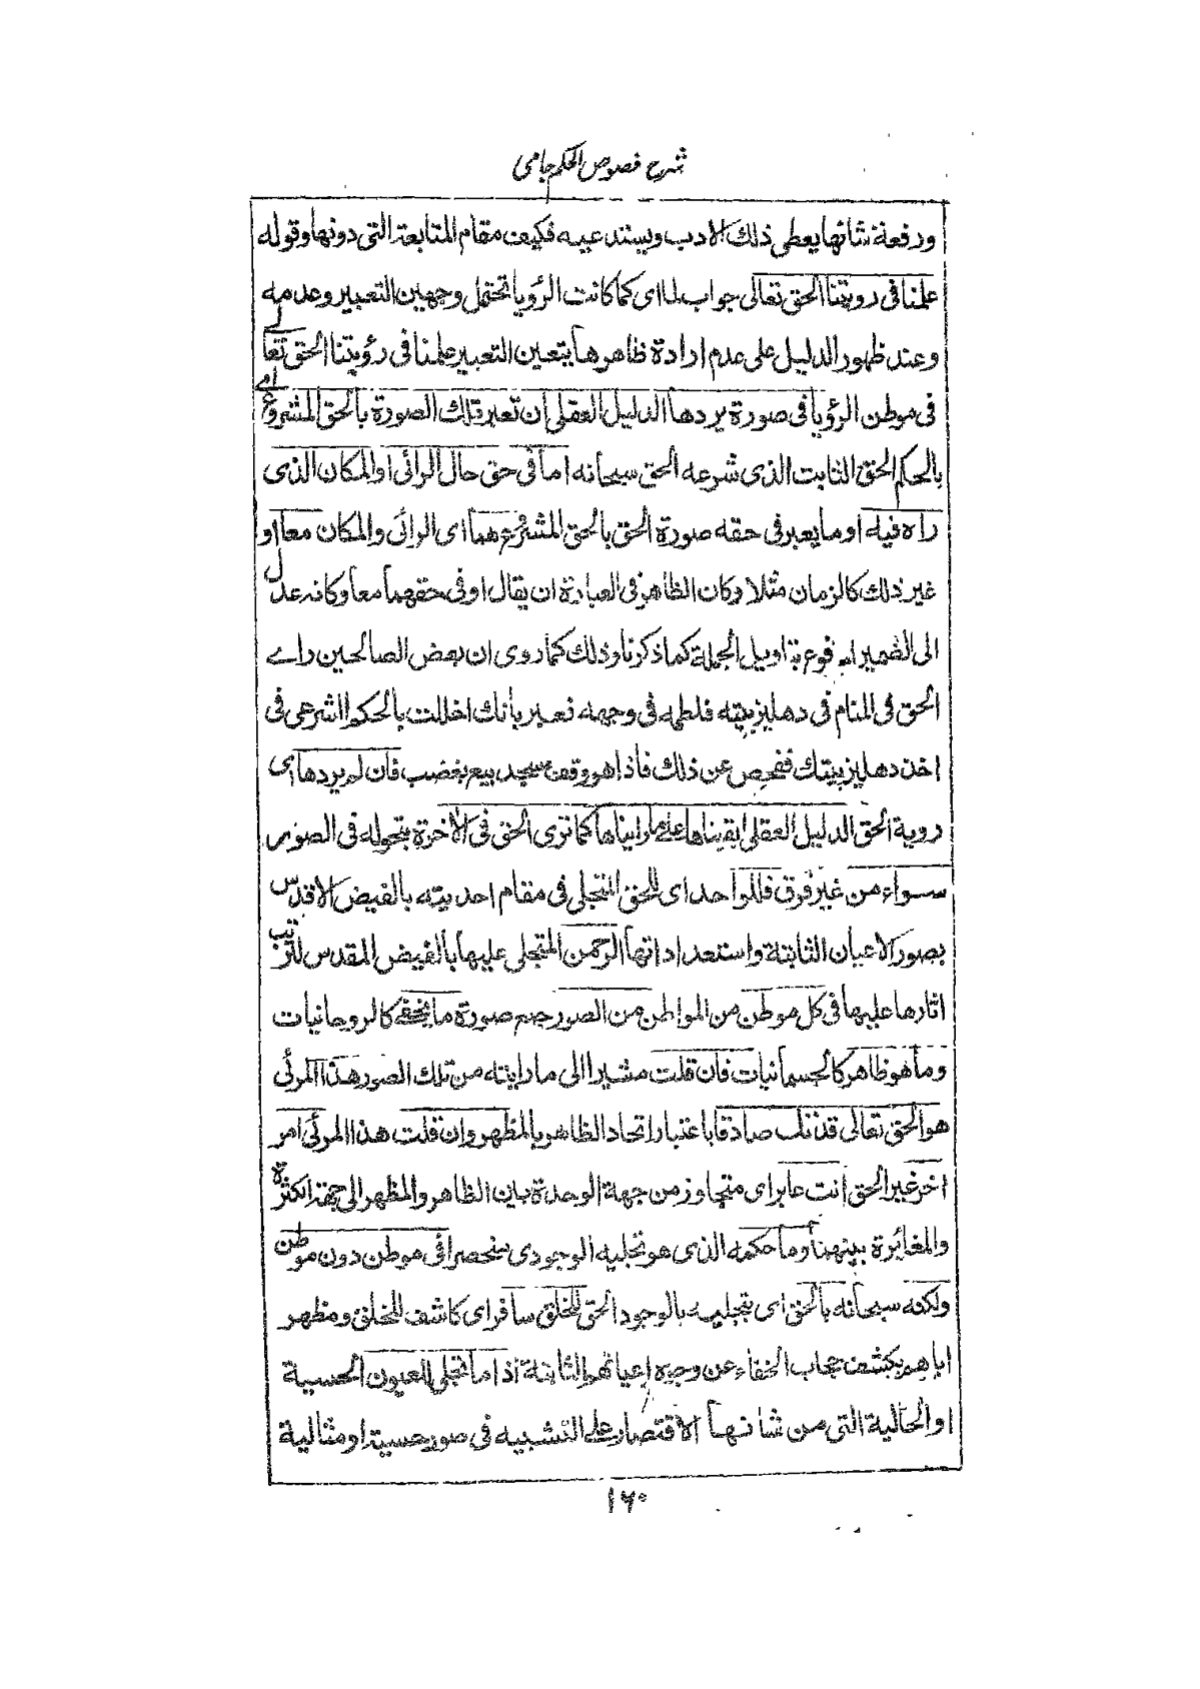 شرح فصوص الحكم جامی
ورفعة شانها يعطى ذلك الادب ويستدعيه فكيف مقام المتابعة التى دونها وقوله
علمنا فى رويتنا الحق تعالى جواب لما اى كما كانت الرؤيا تحتمل وجهين التعبير وعدمه
وعند ظهور الدليل على عدم ارادة ظاهرها يتعين التعبير علمنا فى رؤيتنا الحق تعالى
فى موطن الرؤيا فى صورة يردها الدليل العقلى ان تعبر تلك الصورة بالحق المشروع اے
بالحكم الحق الثابت الذى شرعه الحق سبحانه اما فى حق حال الرائى او المكان الذى
راه فيه او ما يعبر فى حقه صورة الحق بالحق المشروع هما اى الرائى والمكان معا او
غير ذلك كالزمان مثلا وكان الظاهر فى العبارة ان يقال او فى حقهما معا وكانه عدل
الى الضمير المرفوع بتاويل الجملة كما ذكرنا وذلك كما روى ان بعض الصالحين راے
الحق فى المنام فى دهليز بيته فلطمه فى وجهه فعبر بانك اخللت بالحكم الشرعى فى
اخذ دهليز بيتك ففحص عن ذلك فاذا هو وقف مسجد بيع بغضب فان لم يردها اى
روية الحق الدليل العقلى ابقيناها على ما رايناها كما نرى الحق فى الاخرة بتحوله فى الصور
سواء من غير فرق فللواحد اى للحق المتجلى فى مقام احديته بالفيض الاقدس
بصور الاعيان الثابتة واستعداداتها الرحمن المتجلى عليها بالفيض المقدس لترتب
اثارها عليها فى كل موطن من المواطن من الصور صورة ما يخفى كالروحانيات
وما هو ظاهر كالجسمانيات فان قلت مشيرا الى ما رايته من تلك الصور هذا المرئى
هو الحق تعالى قد تك صادقا باعتبار اتحاد الظاهر بالمظهر وان قلت هذا المرئى امر
اخر غير الحق انت عابر اى متجاوز من جهة الوحدة بين الظاهر والمظهر الى جهة الكثرة
والمغائرة بينهما وما حكمه الذى هو تجليه الوجودى منحصرا فى موطن دون موطن
ولكنه سبحانه بالحق اى بتجليه بالوجود الحق للخلق سافر اى كاشف للخلق ومظهر
اياهم بكشف حجاب الخفاء عن وجوه اعيانهم الثابتة اذا ما تجلى للعيون الحسية
او الخالية التى من شانها الاقتصار على التشبيه فى صور حسية او مثالية
۱۶۰